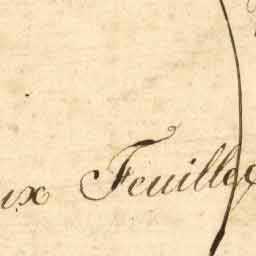 ux Feuilles